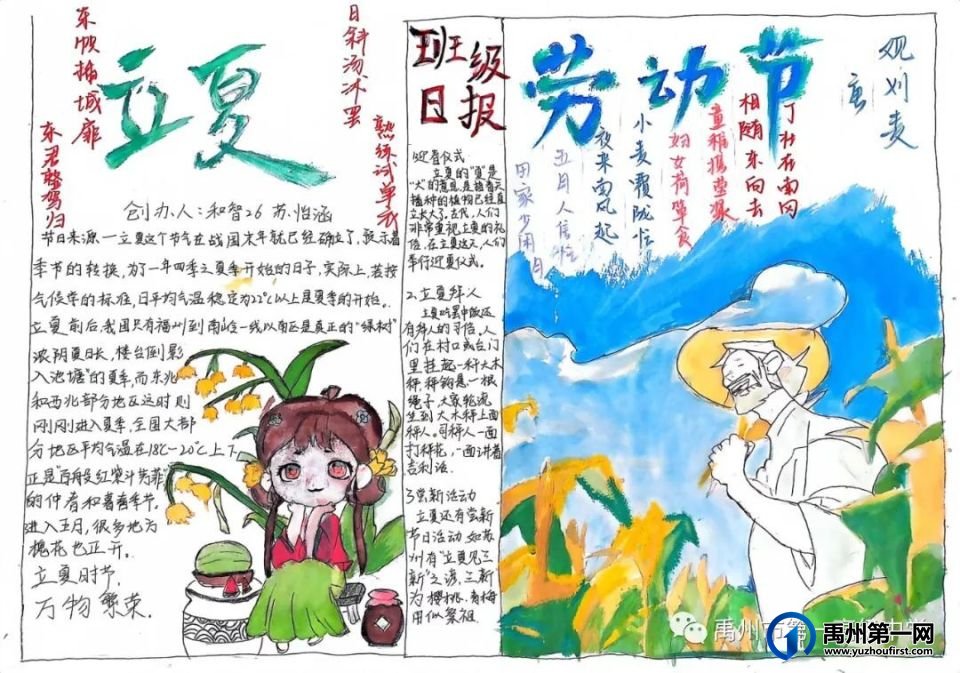 东帔拂城扉
东君整驾归
立夏
日斜汤沐罢
熟练试单衣
创办人：和智26 苏怡涵
节日来源—立夏这个节气在战国末年就已经确立了，预示着
季节的转换，为了一年四季之夏季开始的日子，实际上，若按
气候学的标准，日平均气温稳定为22℃以上是夏季的开始。
立夏前后，我国只有福州到南岭一线以南区是真正的“绿树
浓阴夏日长，楼台倒影
入池塘”的夏季，而东北
和西北部分地区这时则
刚刚进入夏季，全国大部
分地区平均气温在18℃—20℃上下
正是“百般红紫斗芳菲”
的仲春和暮春季节。
进入五月，很多地为
槐花也正开。
立夏时节，
万物繁荣．
班级
日报
1迎春仪式
立夏的“夏”是
“大”的意思，是指春天
播种的植物已经直
立长大了，古代，人们
非常重视立夏的礼
俗，在立夏这天，人们
举行迎夏仪式。
2.立夏秤人
立夏吃罢中饭还
有秤人的习俗。人
们在村口或台门
里挂起一秤大木
秤，秤钩是一根
绳子，大家轮流
坐到大木秤上面
秤人。司秤人一面
打秤花，一面讲着
吉利话．
3尝新活动
立夏还有尝新
节日活动，如苏
州有“立夏见三
新”之谚，三新
为樱桃．青梅
劳动节
观刈麦
唐
丁壮在南冈
相随东向去
童稚携壶浆
妇女荷箪食
小麦覆陇
夜来南风起
五月人倍忙
田家少闲月
禹州第一网
www.yuzhoufirst.com